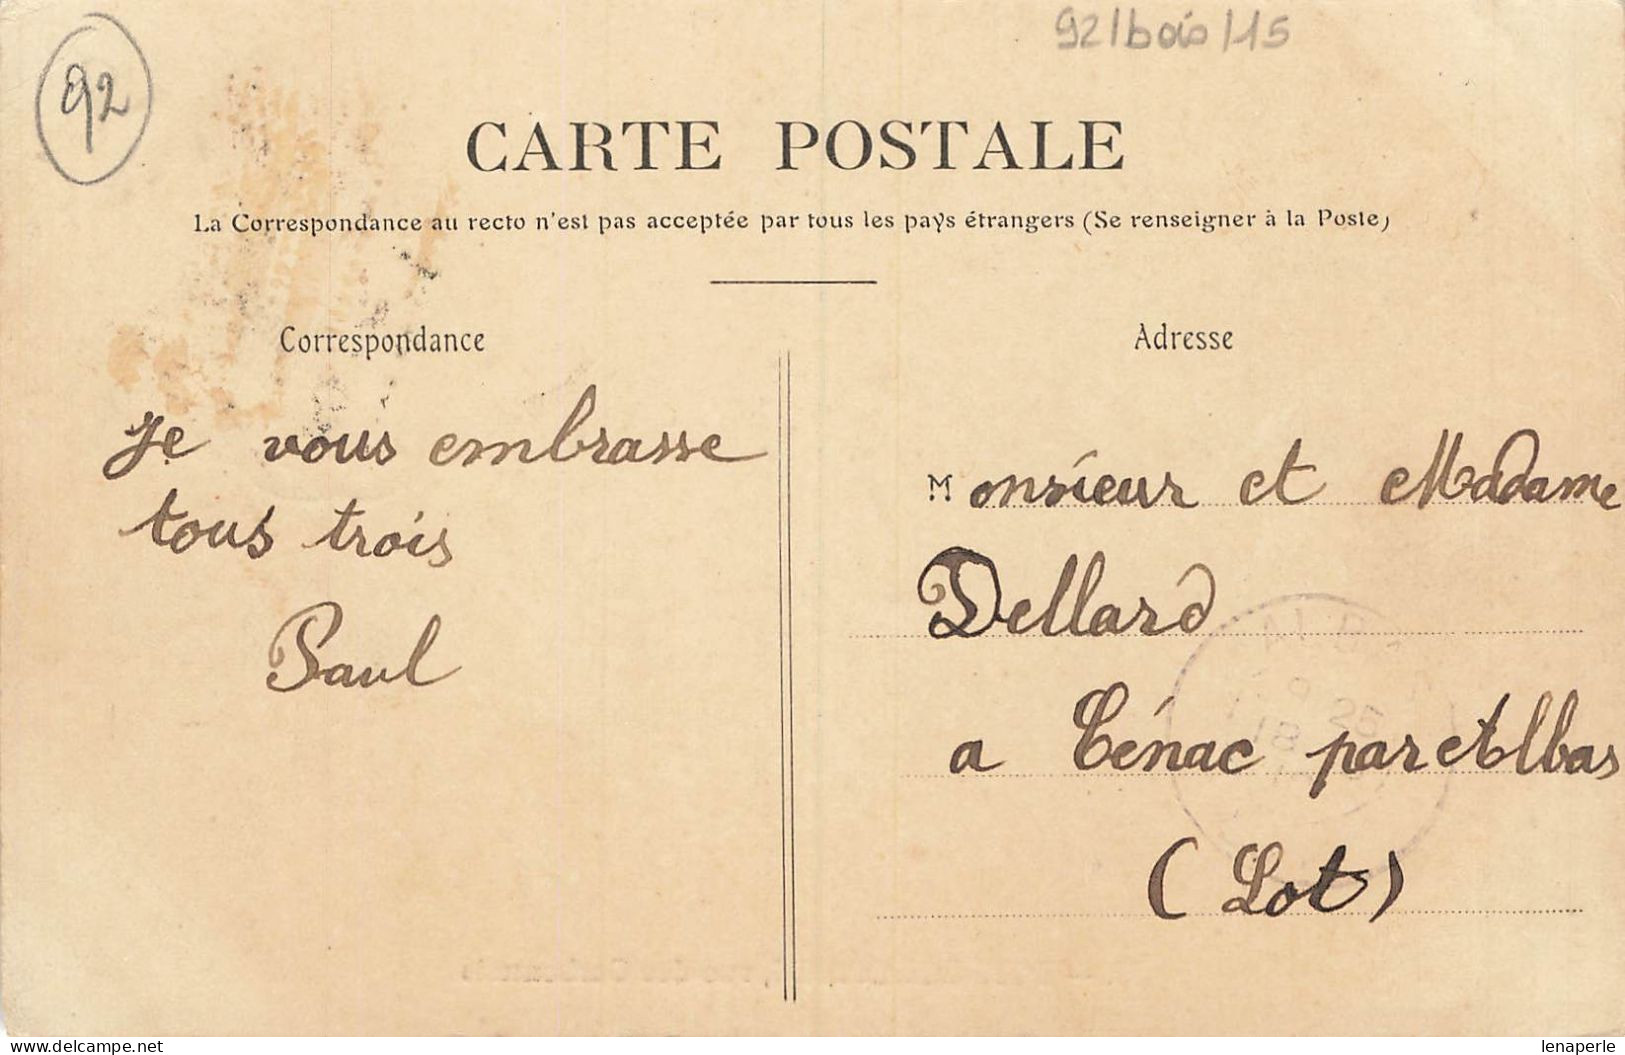 92
92/bois/15
CARTE POSTALE
La Correspondance au recto n'est pas acceptée par tous les pays étrangers (Se renseigner à la Poste)
Correspondance
Je vous embrasse
tous trois
Paul
Adresse
Monsieur et Madame
Dellard
a Cénac par Albas
(Lot)
www.delcampe.net
lenaperle